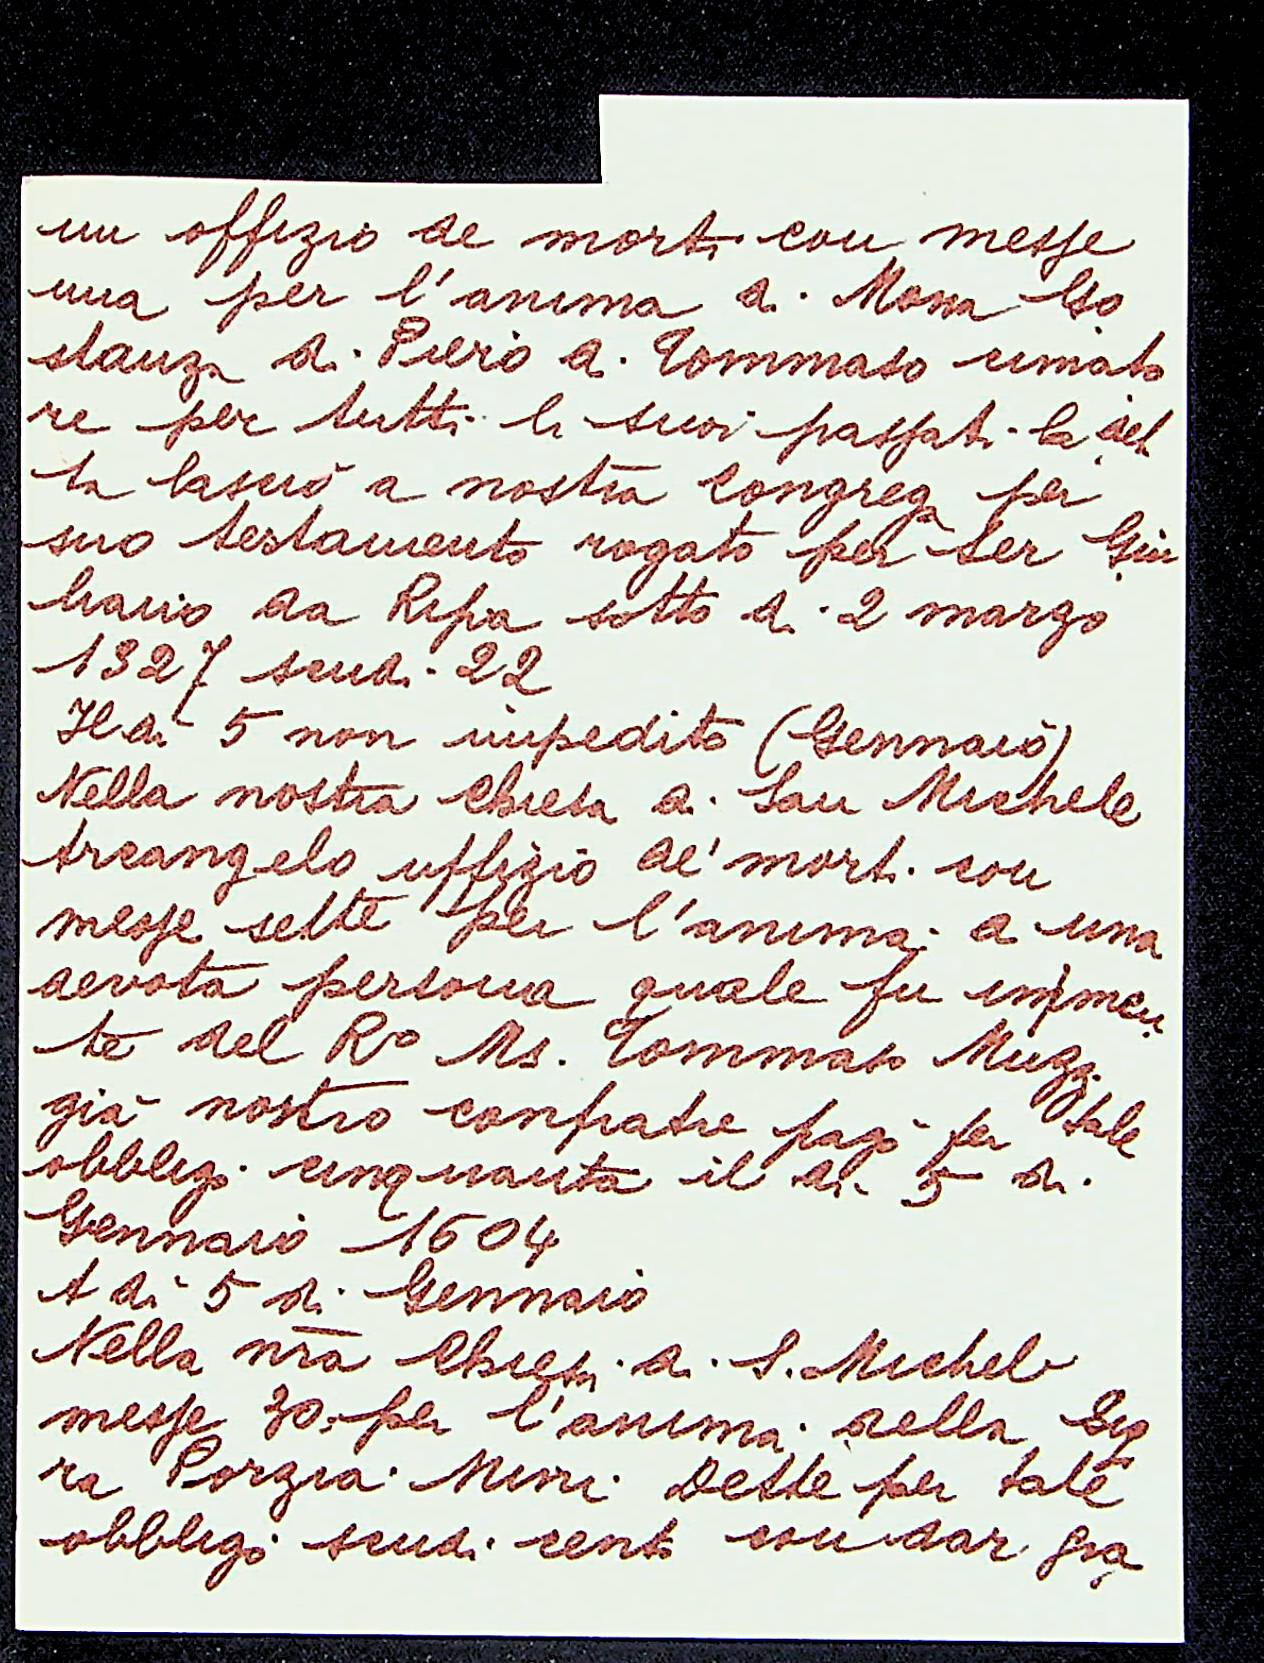 un offizio de morti con messe
una per l'anima di Mona Go
stanza di Piero di Tommaso cimato
re per tutti li suoi passati la det
ta lasciò a nostra Congreg per
suo testamento rogato per Ser Giu
liano da Ripa sotto di 2 marzo
1327 scudi 22
Il dì 5 non impedito (Gennaio)
Nella nostra Chiesa di San Michele
Arcangelo uffizio de' morti con
messe sette per l'anima di una
devota persona quale fu
te del Rº Ms. Tommaso Muzzi
già nostro confratre pagò per tale
obbligo cinquanta il dì 5 di
Gennaio 1604
A dì 5 di Gennaio
Nella nrā Chiesa di S. Michele
messe 30 per l'anima della Sig
ra Porzia Mini Dette per tale
obbligo scudi cento con dar